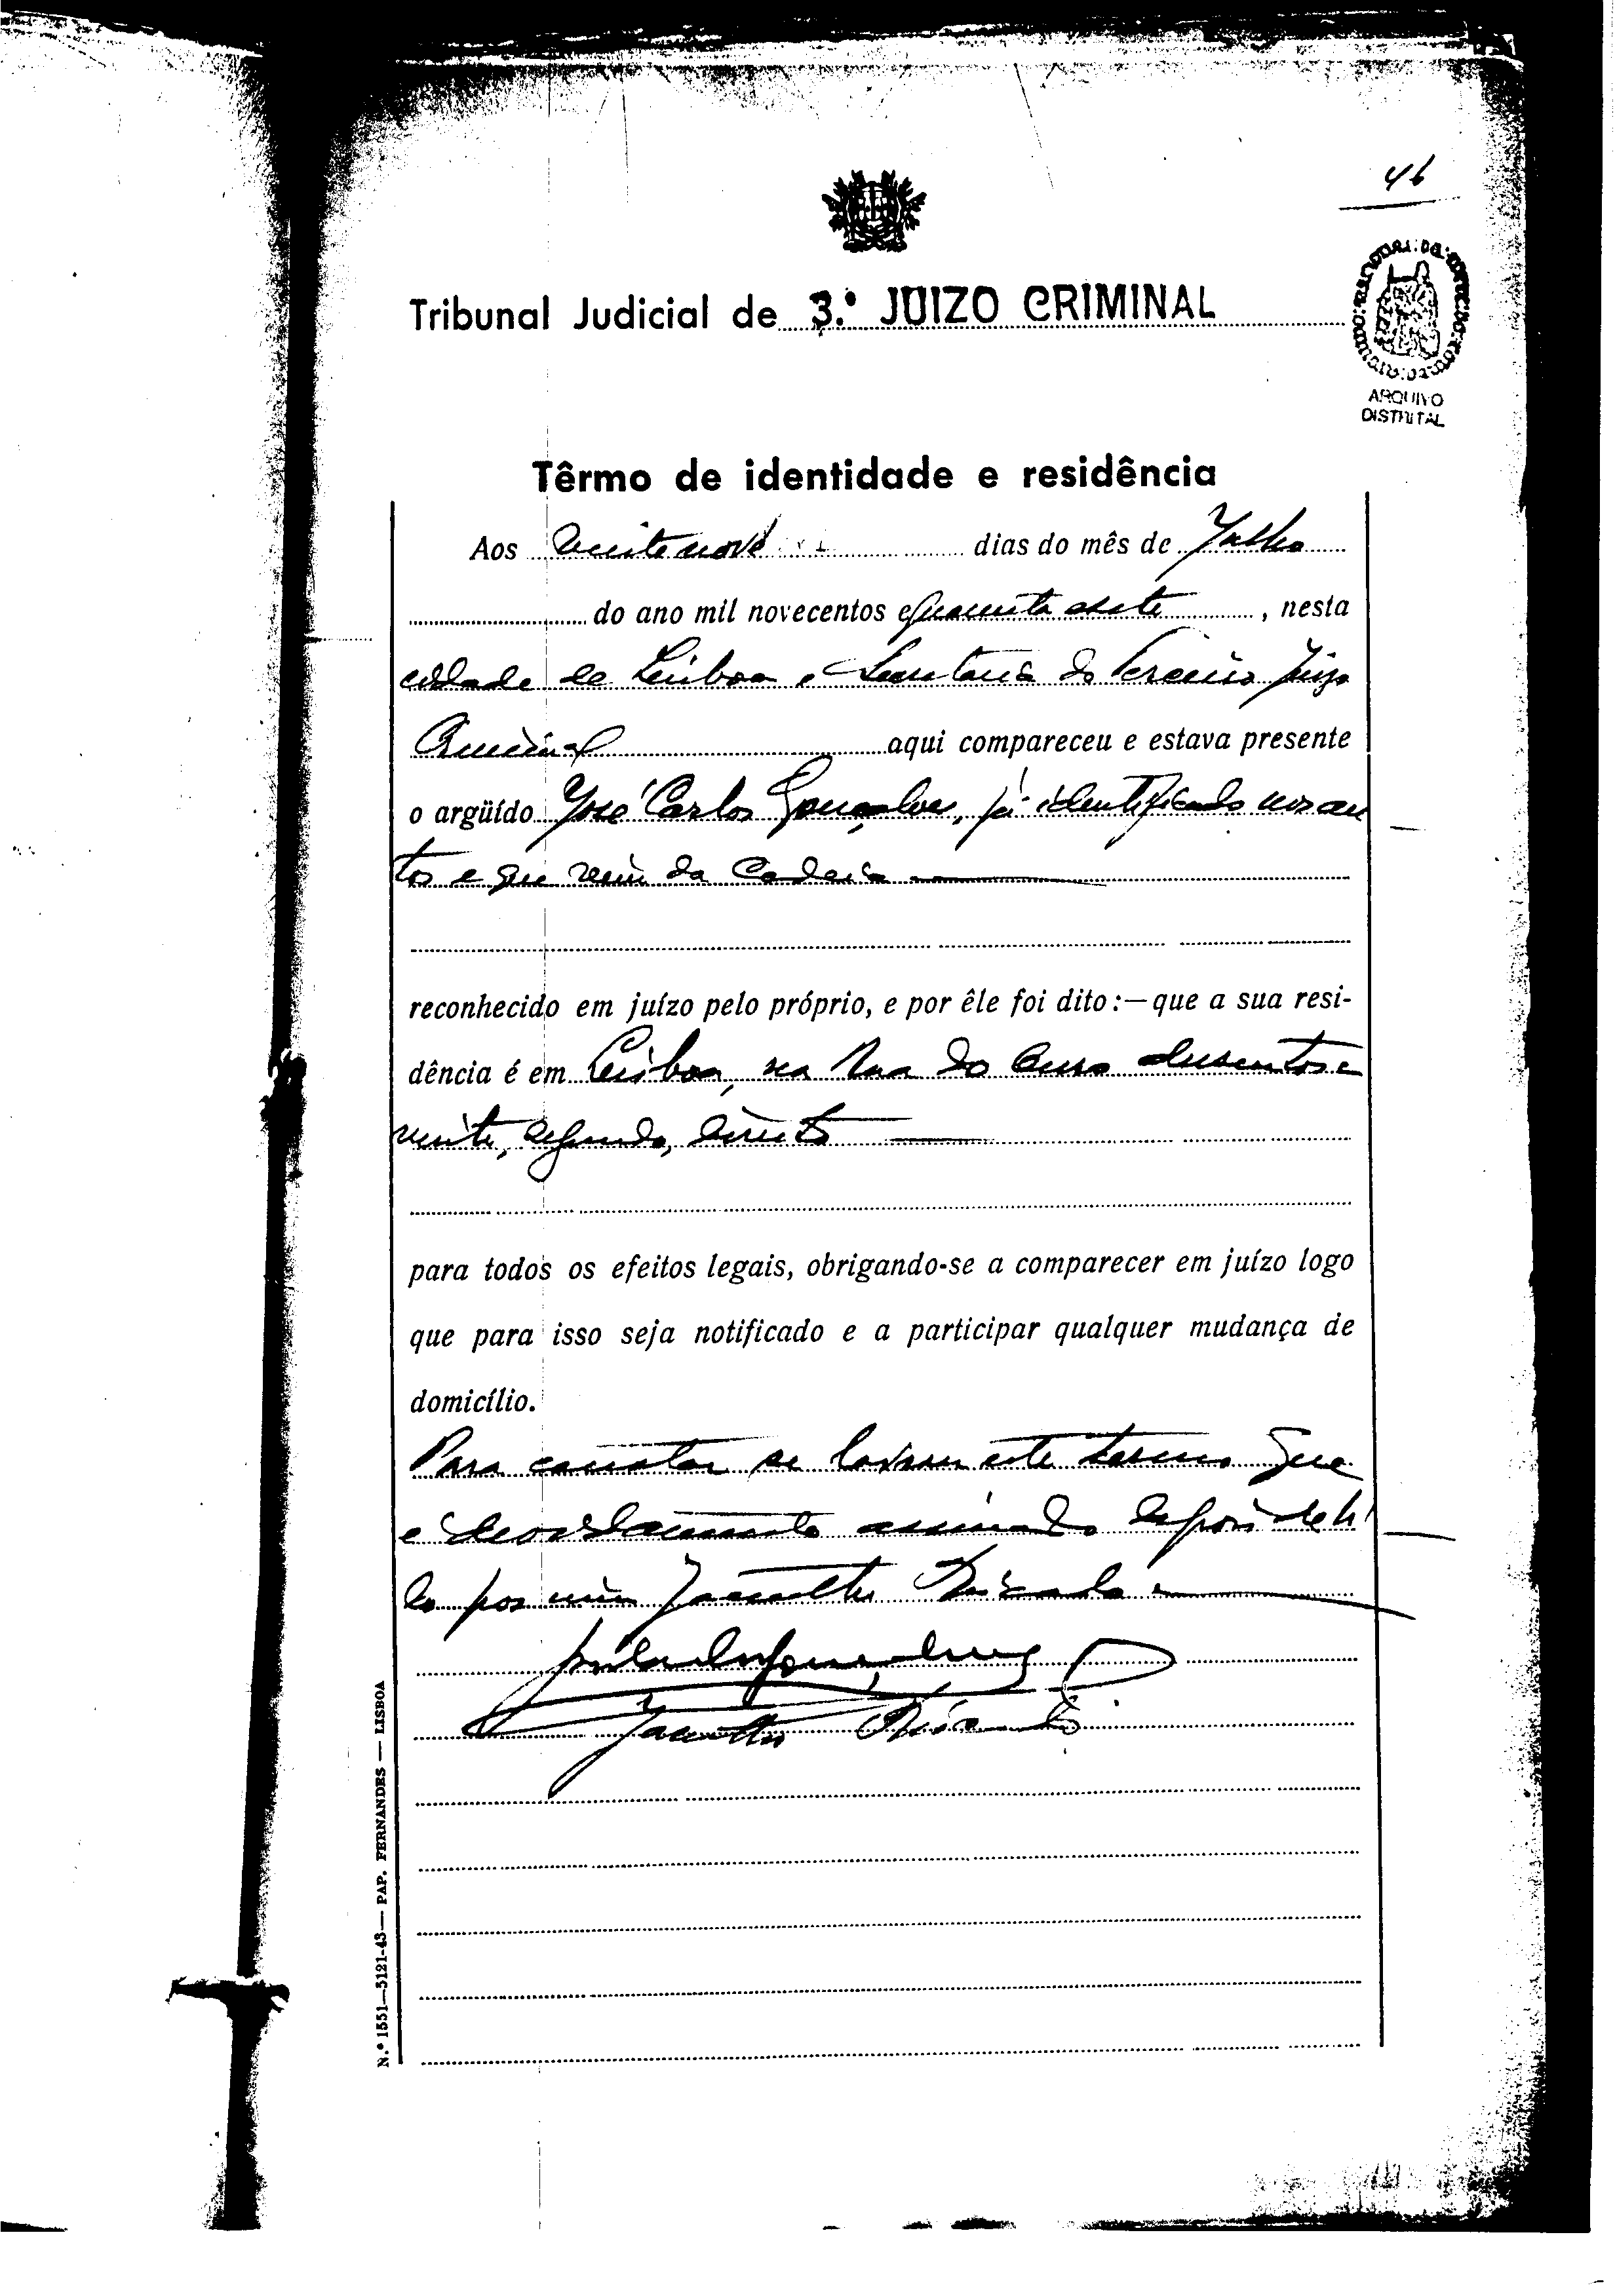 46
Tribunal Judicial de 3.º JUIZO CRIMINAL
ARQUIVO
DISTRITAL
Têrmo de identidade e residência
Aos vinte nove dias do mês de Julho
do ano mil novecentos e quarenta e sete, nesta
cidade de Lisboa e Secretaria do Terceiro Juizo
Criminal aqui compareceu e estava presente
o argüido José Carlos Gonçalves, já identificado nos au
tos e que veio da Cadeia
reconhecido em juízo pelo próprio, e por êle foi dito:—que a sua resi-
dência é em Lisboa, na Rua do Ouro duzentos e
vinte, segundo, direito
para todos os efeitos legais, obrigando-se a comparecer em juízo logo
que para isso seja notificado e a participar qualquer mudança de
domicílio.
Para constar se lavrou este termo que
é devidamente assinado depois de li
do por mim Jacintho
Jacintho
N.º 1551—5121-43— PAP. FERNANDES — LISBOA